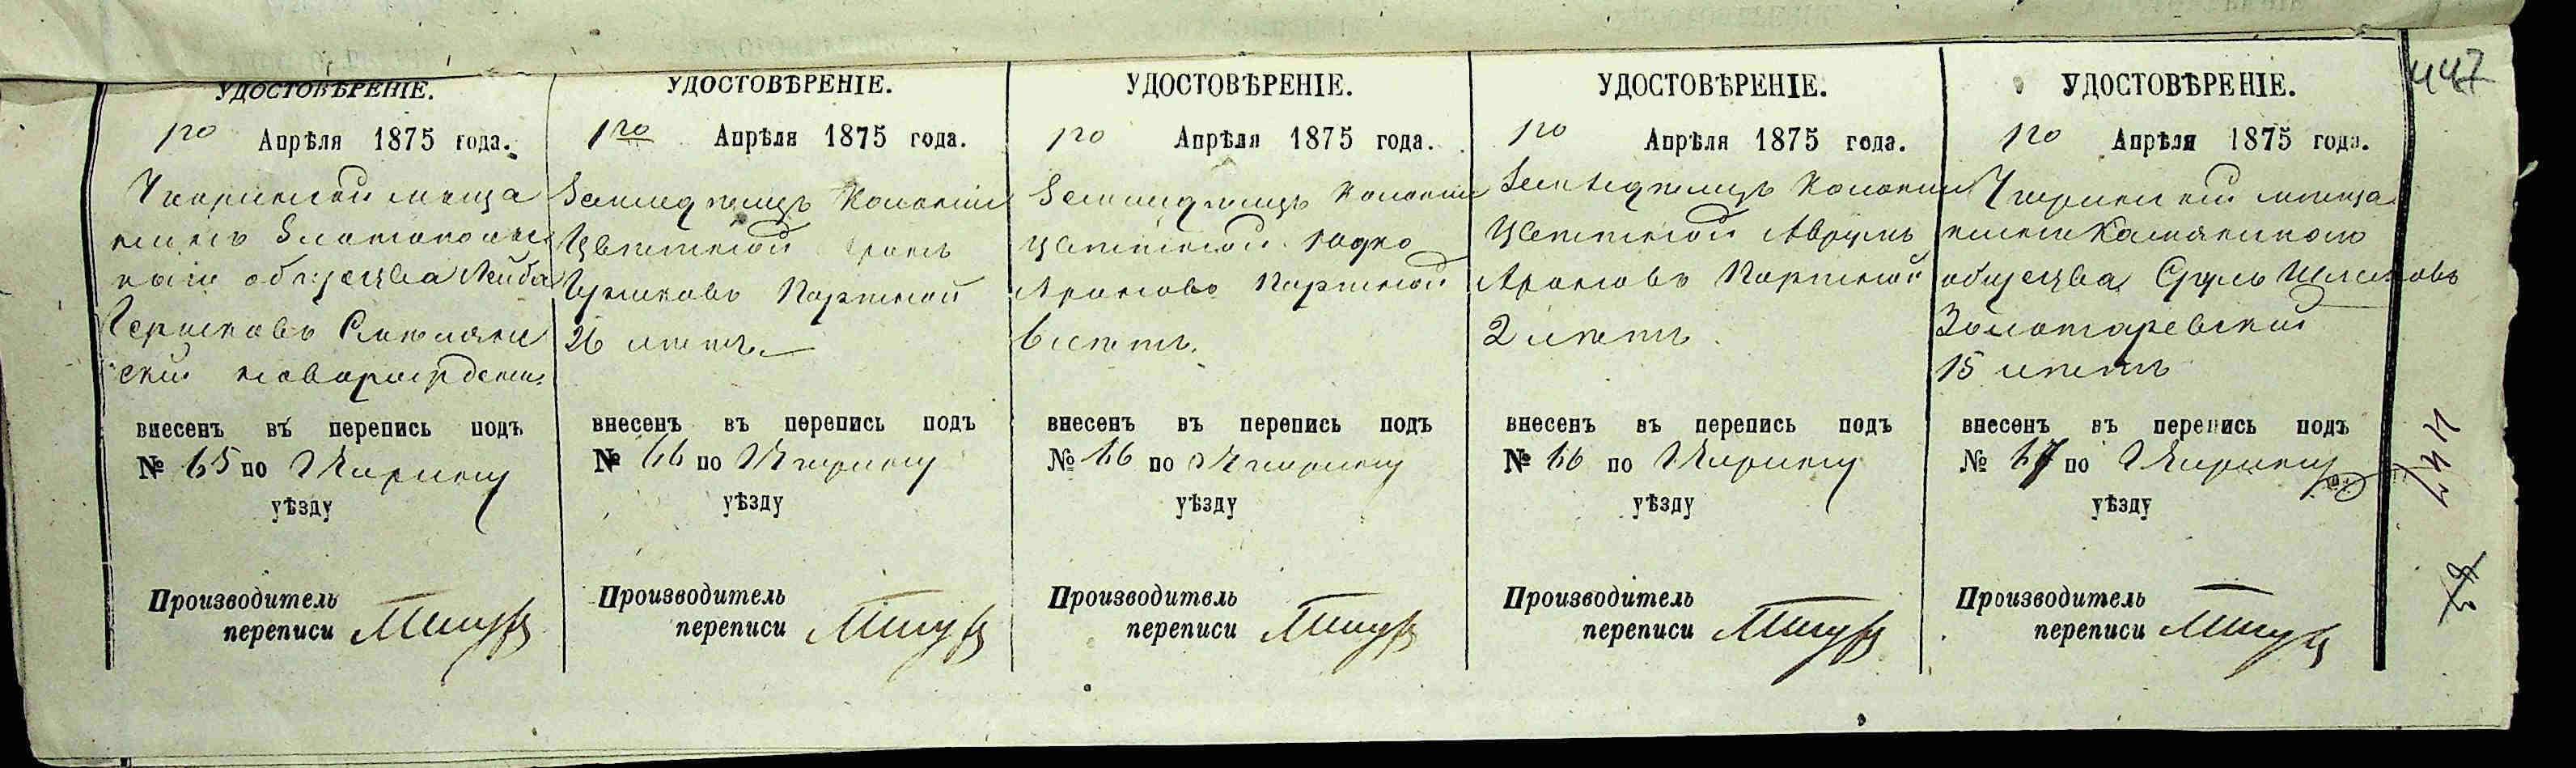 447
УДОСТОВѢРЕНІЕ.
1го Апрѣля 1875 года.
Чигиринскій меща
нинъ Златополь
скаго общества Лейба
Гершковъ
новорожден.
внесенъ въ перепись подъ
№ 65 по Чигирину
уѣзду
Производитель
переписи
УДОСТОВѢРЕНІЕ.
1го Апрѣля 1875 года.
Земледѣлецъ Колоніи
Цвѣтной Аронъ
Ицковъ Портной
26 лѣтъ
внесенъ въ перепись подъ
№ 66 по Чигирину
уѣзду
Производитель
переписи
УДОСТОВѢРЕНІЕ.
1го Апрѣля 1875 года.
Земледѣлецъ Колоніи
Цвѣтной
Ароновъ Портной
6 лѣтъ.
внесенъ въ перепись подъ
№ 66 по Чигирину
уѣзду
Производитель
переписи
УДОСТОВѢРЕНІЕ.
1го Апрѣля 1875 года.
Земледѣлецъ Колоніи
Цвѣтной Аврумъ
Ароновъ Портной
2 лѣтъ.
внесенъ въ перепись подъ
№ 66 по Чигирину
уѣзду
Производитель
переписи
УДОСТОВѢРЕНІЕ.
1го Апрѣля 1875 года.
Чигиринскій меща
нинъ Каменского
общества Сруль Шлемовъ
Золотаревскій
15 лѣтъ
внесенъ въ перепись подъ
№ 67 по Чигирину
уѣзду
Производитель
переписи